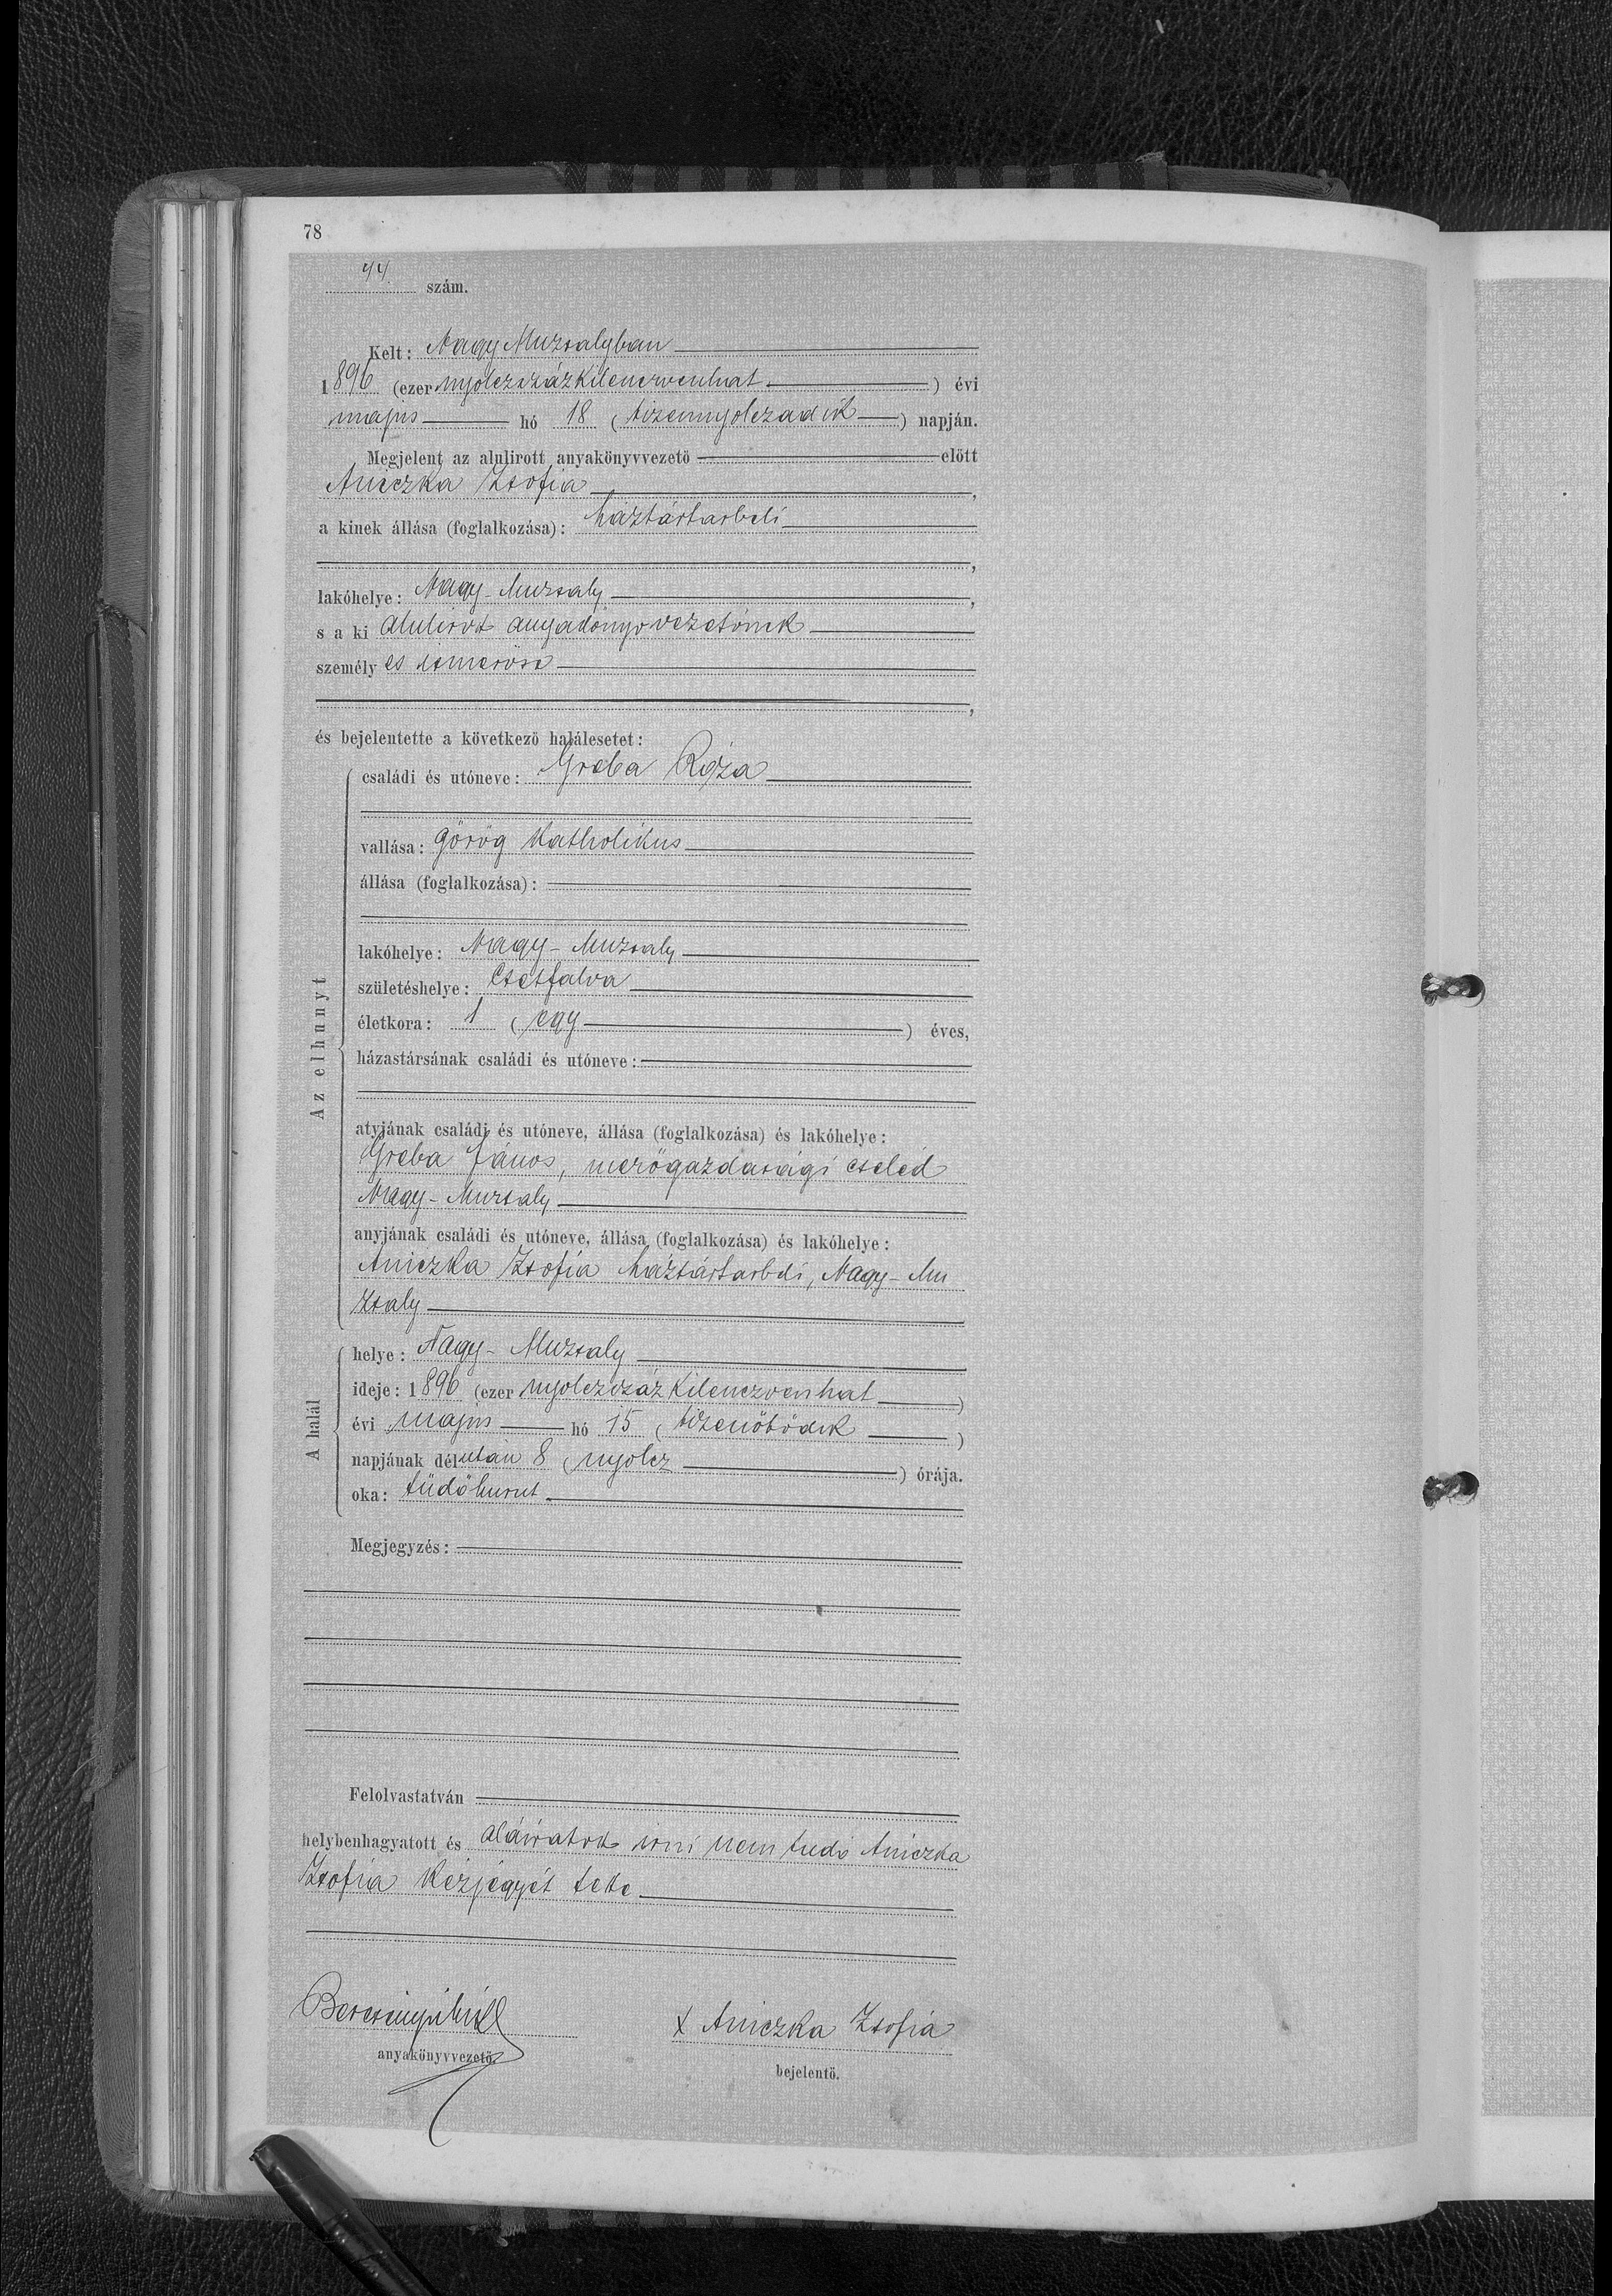 78
44 szám.
Kelt: Nagy Muzsalyban
1896 (ezer nyolczszázkilenczvenhat) évi
majus hó 18 (tizennyolczadik) napján.
Megjelent az alulirott anyakönyvvezető előtt
Aniczka Zsofia,
a kinek állása (foglalkozása): háztártarbeli
,
lakóhelye: Nagy-Muzsaly,
s a ki alulirott anyakönyvvezetőnek
személyes ismerőse
,
és bejelentette a következő halálesetet:
Az elhunyt
családi és utóneve: Greba Róza
vallása: görög Katholikus
állása (foglalkozása):
lakóhelye: Nagy-Muzsaly
születéshelye: Csetfalva
életkora: 1 (egy) éves,
házastársának családi és utóneve:
atyjának családi és utóneve, állása (foglalkozása) és lakóhelye:
Greba János, mezőgazdasági cseléd
Nagy-Muzsaly
anyjának családi és utóneve, állása (foglalkozása) és lakóhelye:
Aniczka Zsofia háztártarbeli, Nagy-Mu
zsaly
A halál
helye: Nagy-Muzsaly
ideje: 1896 (ezer nyolczszázkilenczvenhat)
évi majus hó 15 (tizenötödik)
napjának délután 8 (nyolcz) órája.
oka: tüdőhurut
Megjegyzés:
Felolvastatván
helybenhagyatott és aláiratott irni nem tudó Aniczka
Zsofia kézjegyét tette
anyakönyvvezető.
x Aniczka Zsofia
bejelentő.